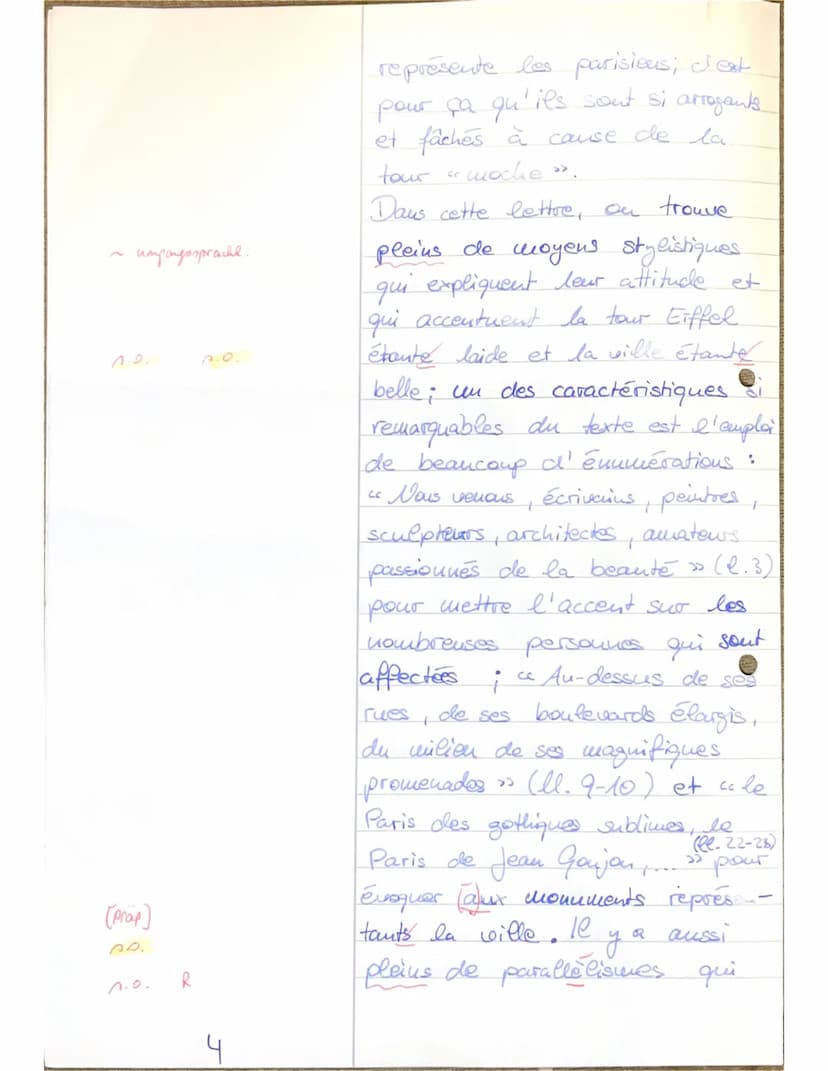 représente les parisiens; c'est
pour ça qu'ils sont si arrogants
et fâchés à cause de la
tour « moche ».
Dans cette lettre, on trouve
~ umgangssprachl.
pleins de moyens stylistiques
qui expliquent leur attitude et
qui accentuent la tour Eiffel
étante laide et la ville étante
belle; un des caractéristiques si
remarquables du texte est l'emploi
de beaucoup d'énumérations :
« Nous venons, écrivains, peintres,
sculpteurs, architectes, amateurs
passionnés de la beauté » (l.3)
pour mettre l'accent sur les
nombreuses personnes qui sont
affectées ; « Au-dessus de ses
rues, de ses boulevards élargis,
du milieu de ses magnifiques
promenades » (ll. 9-10) et « le
Paris des gothiques sublimes, le
(ll. 22-23)
Paris de Jean Goujon,... » pour
évoquer (a)ux monuments représen-
[Präp]
tants la ville. Il y a aussi
pleins de parallèlismes qui
R
4